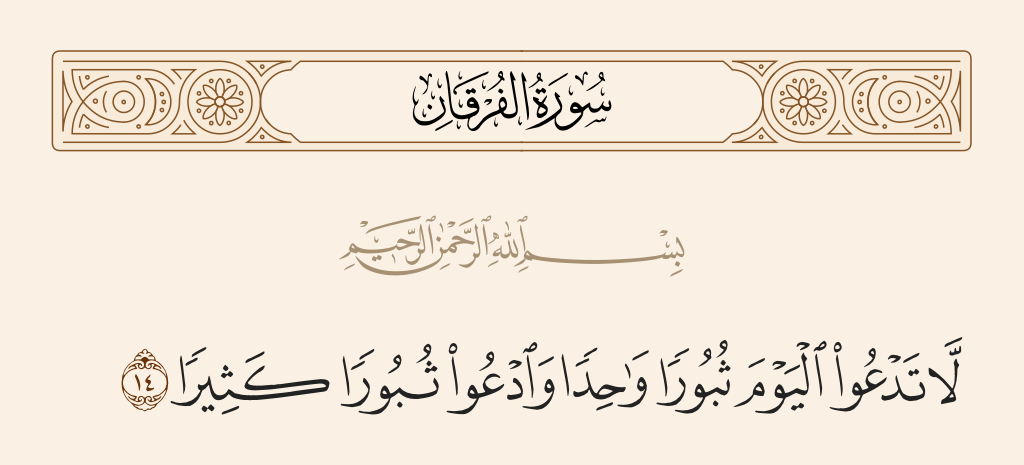 سُورَةُ الفُرْقَانِ
بِسْمِ ٱللَّهِ ٱلرَّحْمَٰنِ ٱلرَّحِيمِ
لَّا تَدْعُوا۟ ٱلْيَوْمَ ثُبُورًا وَٰحِدًا وَٱدْعُوا۟ ثُبُورًا كَثِيرًا ١٤